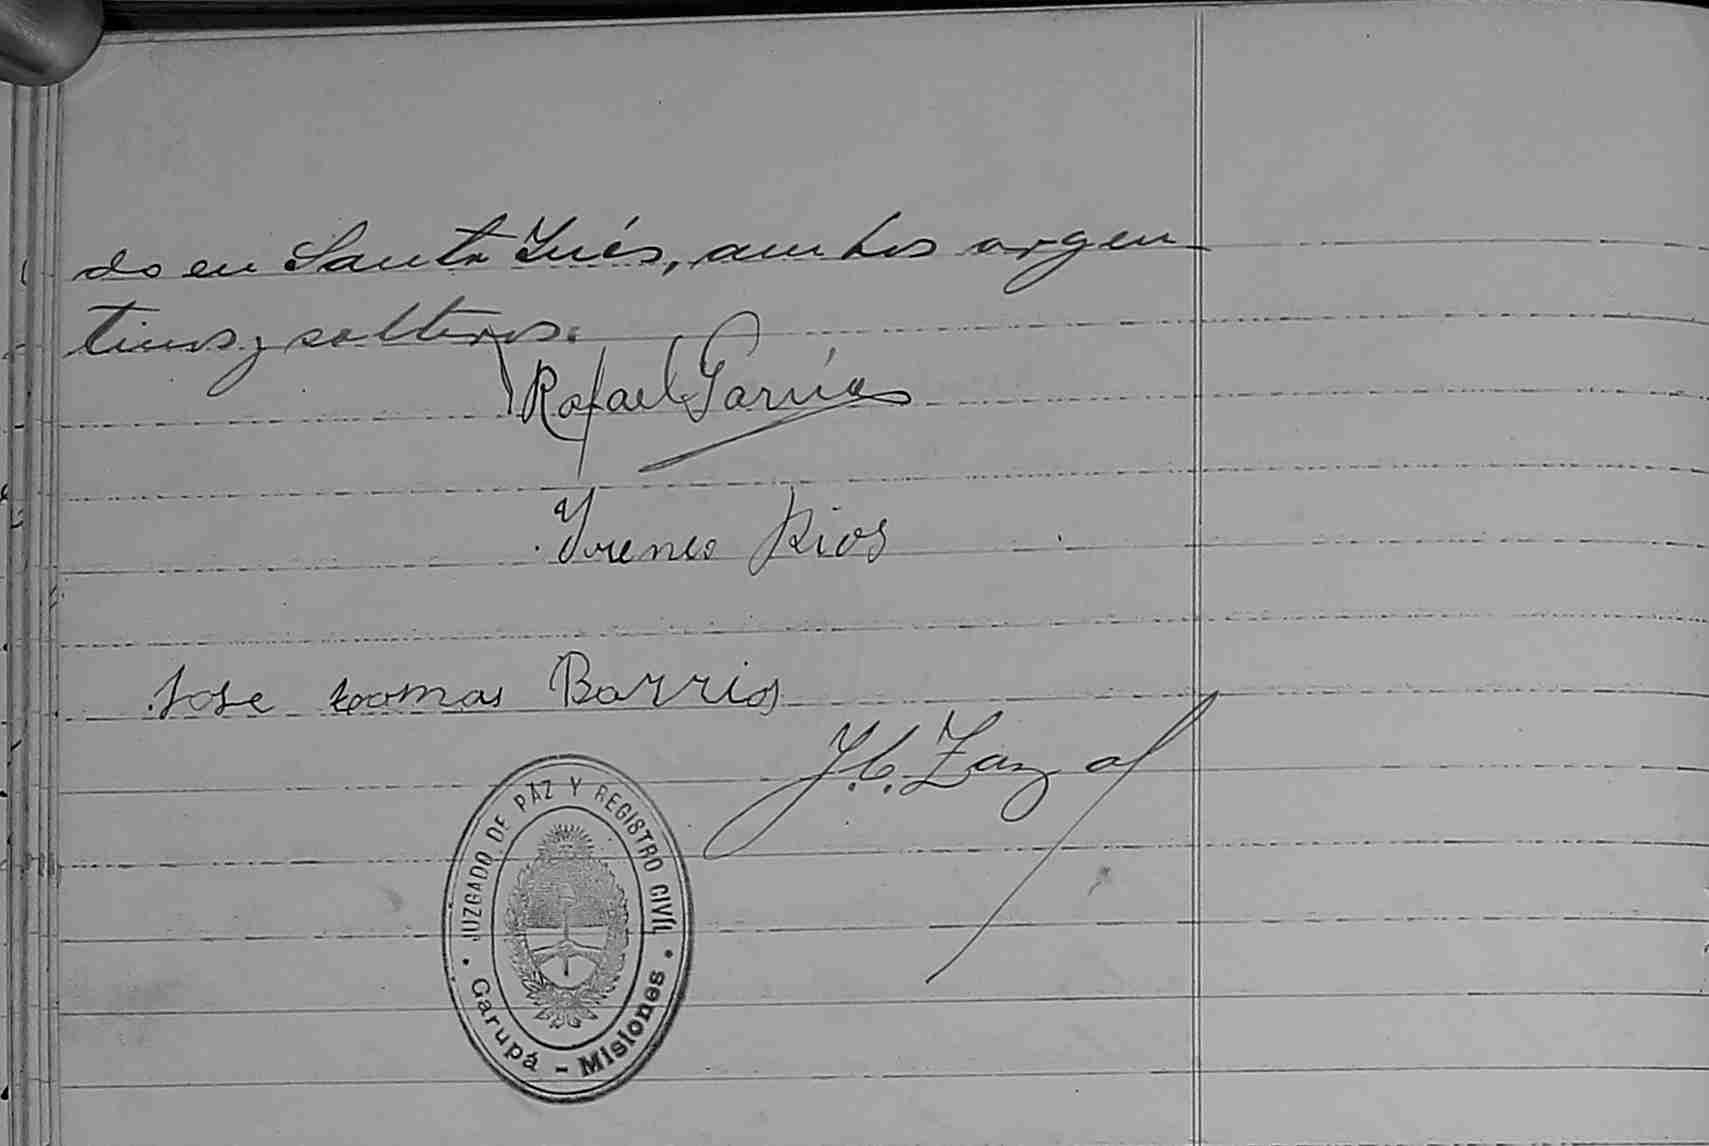 do en Santa Inés, ambos argen
tinos y solteros.
Rafael García
Yreneo Rios
Jose tomas Barrios
J. C. Zaz
JUZGADO DE PAZ Y REGISTRO CIVÍL
Garupá - Misiones